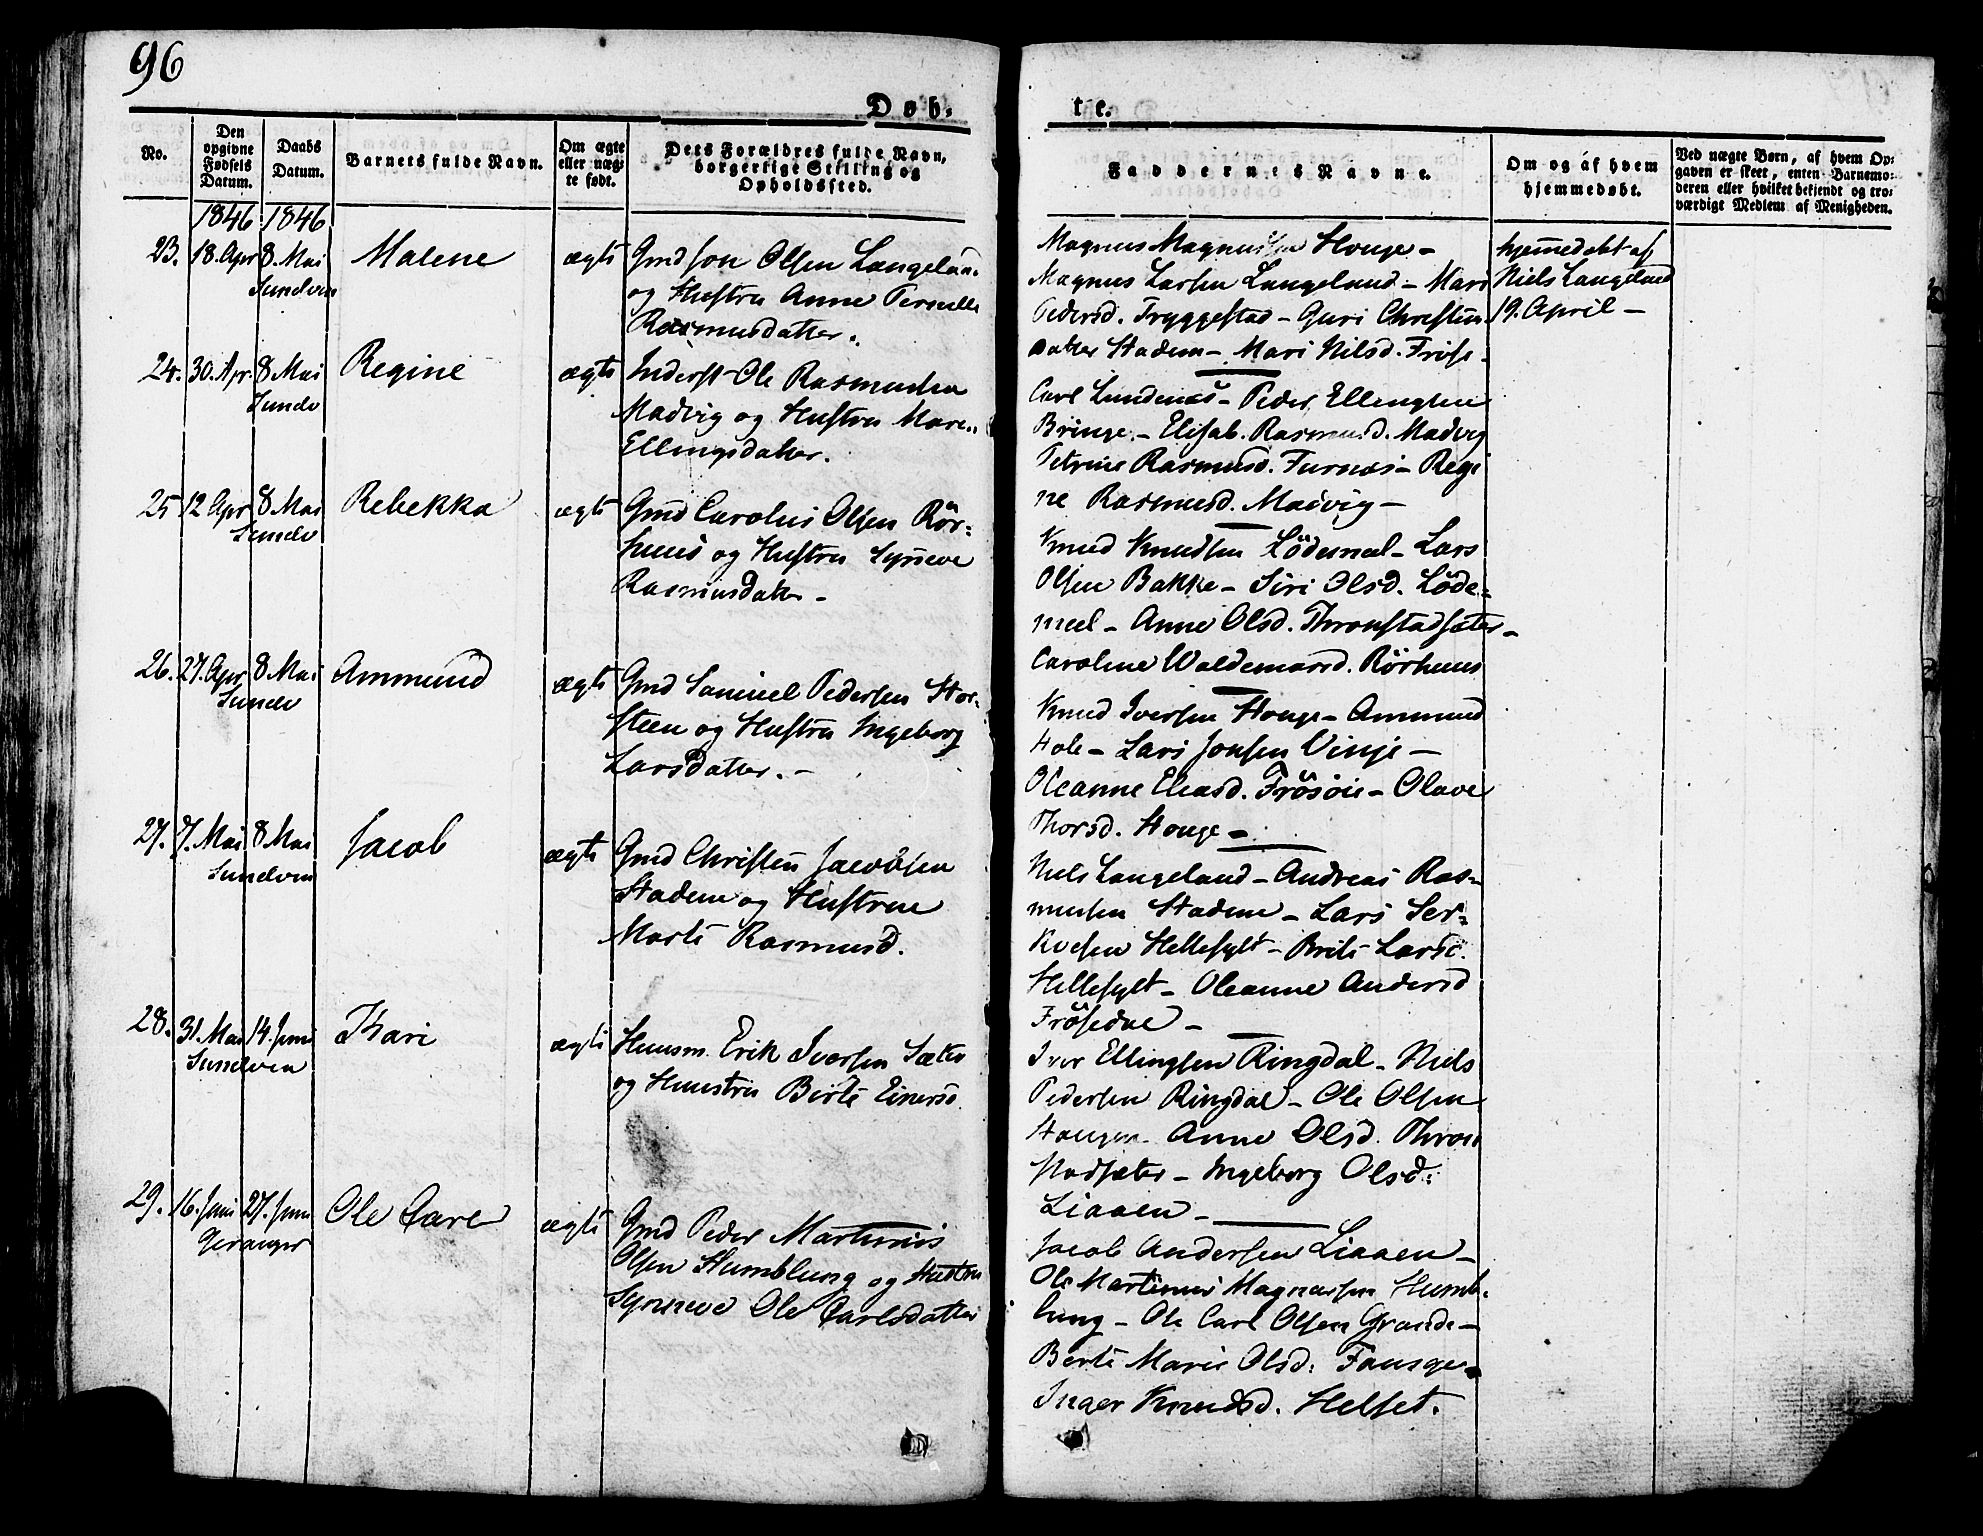 96
Døb-
te.
No.
Den opgivne Fødsels Datum.
Daabs Datum.
Barnets fulde Navn.
Om ægte eller uægte født.
Dets Forældres fulde Navn, borgerlige Stilling og Opholdssted.
Faddernes Navne.
Om og af hvem hjemmedøbt.
Ved uægte Børn, af hvem Opgaven er skeet, enten Barnemoderen eller hvilket bekjendt og troværdigt Medlem af Menigheden.
1846 1846
23. 18. Apr 8. Mai Malene ægte Gmd Jon Olsen Langeland
Sundven og Hustru Anne Pernille
Rasmusdatter.
Magnus Magnussen Houge -
Magnus Larsen Langeland - Mari
Pedersd. Tryggestad - Guri Christen
datter Stadem - Mari Nilsd. Frøse -
hjemmedøbt af
Niels Langeland
19. April -
24. 30. Apr. 8 Mai Regine ægte Inderst Ole Rasmusen
Sundv Madvig og Hustru Mare
Ellingsdatter.
Carl Lundenes - Peder Ellengsen
Bringe - Elisab. Rasmusd. Madvig
Petrine Rasmusd. Furnes - Regi
ne Rasmusd. Madvig -
25 12 Apr 8 Mai Rebekka ægte Gmd Carolus Olsen Rör-
Sundv huus og Hustru Synneve
Rasmusdatter -
Knud Knudsen Lödemel - Lars
Olsen Bakke - Siri Olsd. Löde-
meel - Anne Olsd. Thronstadsæter -
Caroline Waldemarsd. Rörhuus
26. 27. Apr 8 Mai Ammund ægte Gmd Samuel Pedersen Stor-
Sundv steen og Hustru Ingeborg
Larsdatter. -
Knud Iversen Houge - Ammund
Hole - Lars Jonsen Vinje -
Oleanne Eliasd. Frösöie - Olave
Thorsd. Houge -
27. 7. Mai 8 Mai Jacob ægte Gmd Christen Jacobsen
Sundven Stadem og Hustrue
Marte Rasmusd.
Niels Langeland - Andreas Ras-
musen Stadem - Lars Ser-
Hellesylt - Brite Larsd.
Hellesylt - Oleanne Andersd
Frösedal -
28. 31. Mai 14. Juni Kari ægte Huusm. Erik Iversen Sæter
Sundven og Huustru Birte Einersd
Iver Ellingsen Ringdal - Niels
Pedersen Ringdal - Ole Olsen
Haugen - Anne Olsd. Thron
stadsæter - Ingeborg Olsd.
Liaaen -
29. 16. Juni 27. Juni Ole Carl ægte Gmd Peder Martinus
Geranger Olsen Humblung og Hustru
Synneve Ole Carlsdatter
Jacob Andersen Liaaen -
Ole Martinus Magnussen Humb-
lung - Ole Carl Olsen Grande -
Berte Marie Olsd. Fausge
Inger Knudsd. Helset.